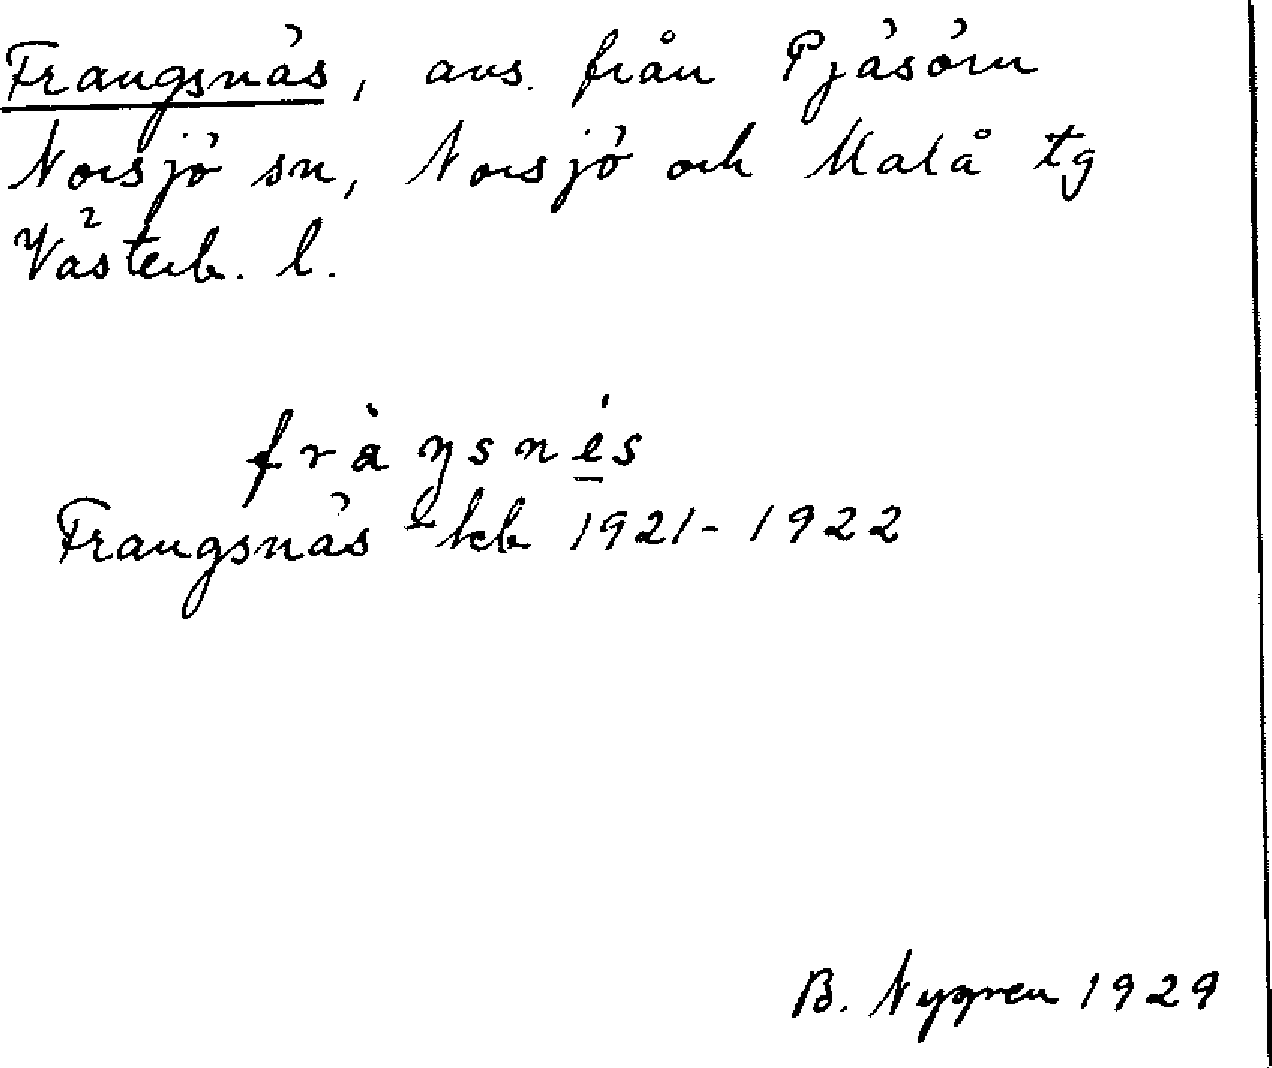 Frangsnäs, avs. från Pjäsörn
Norsjö sn, Norsjö och Malå tg
Västerb. l.
fràŋsnés
Frangsnäs - kb 1921-1922
B. Nygren 1929